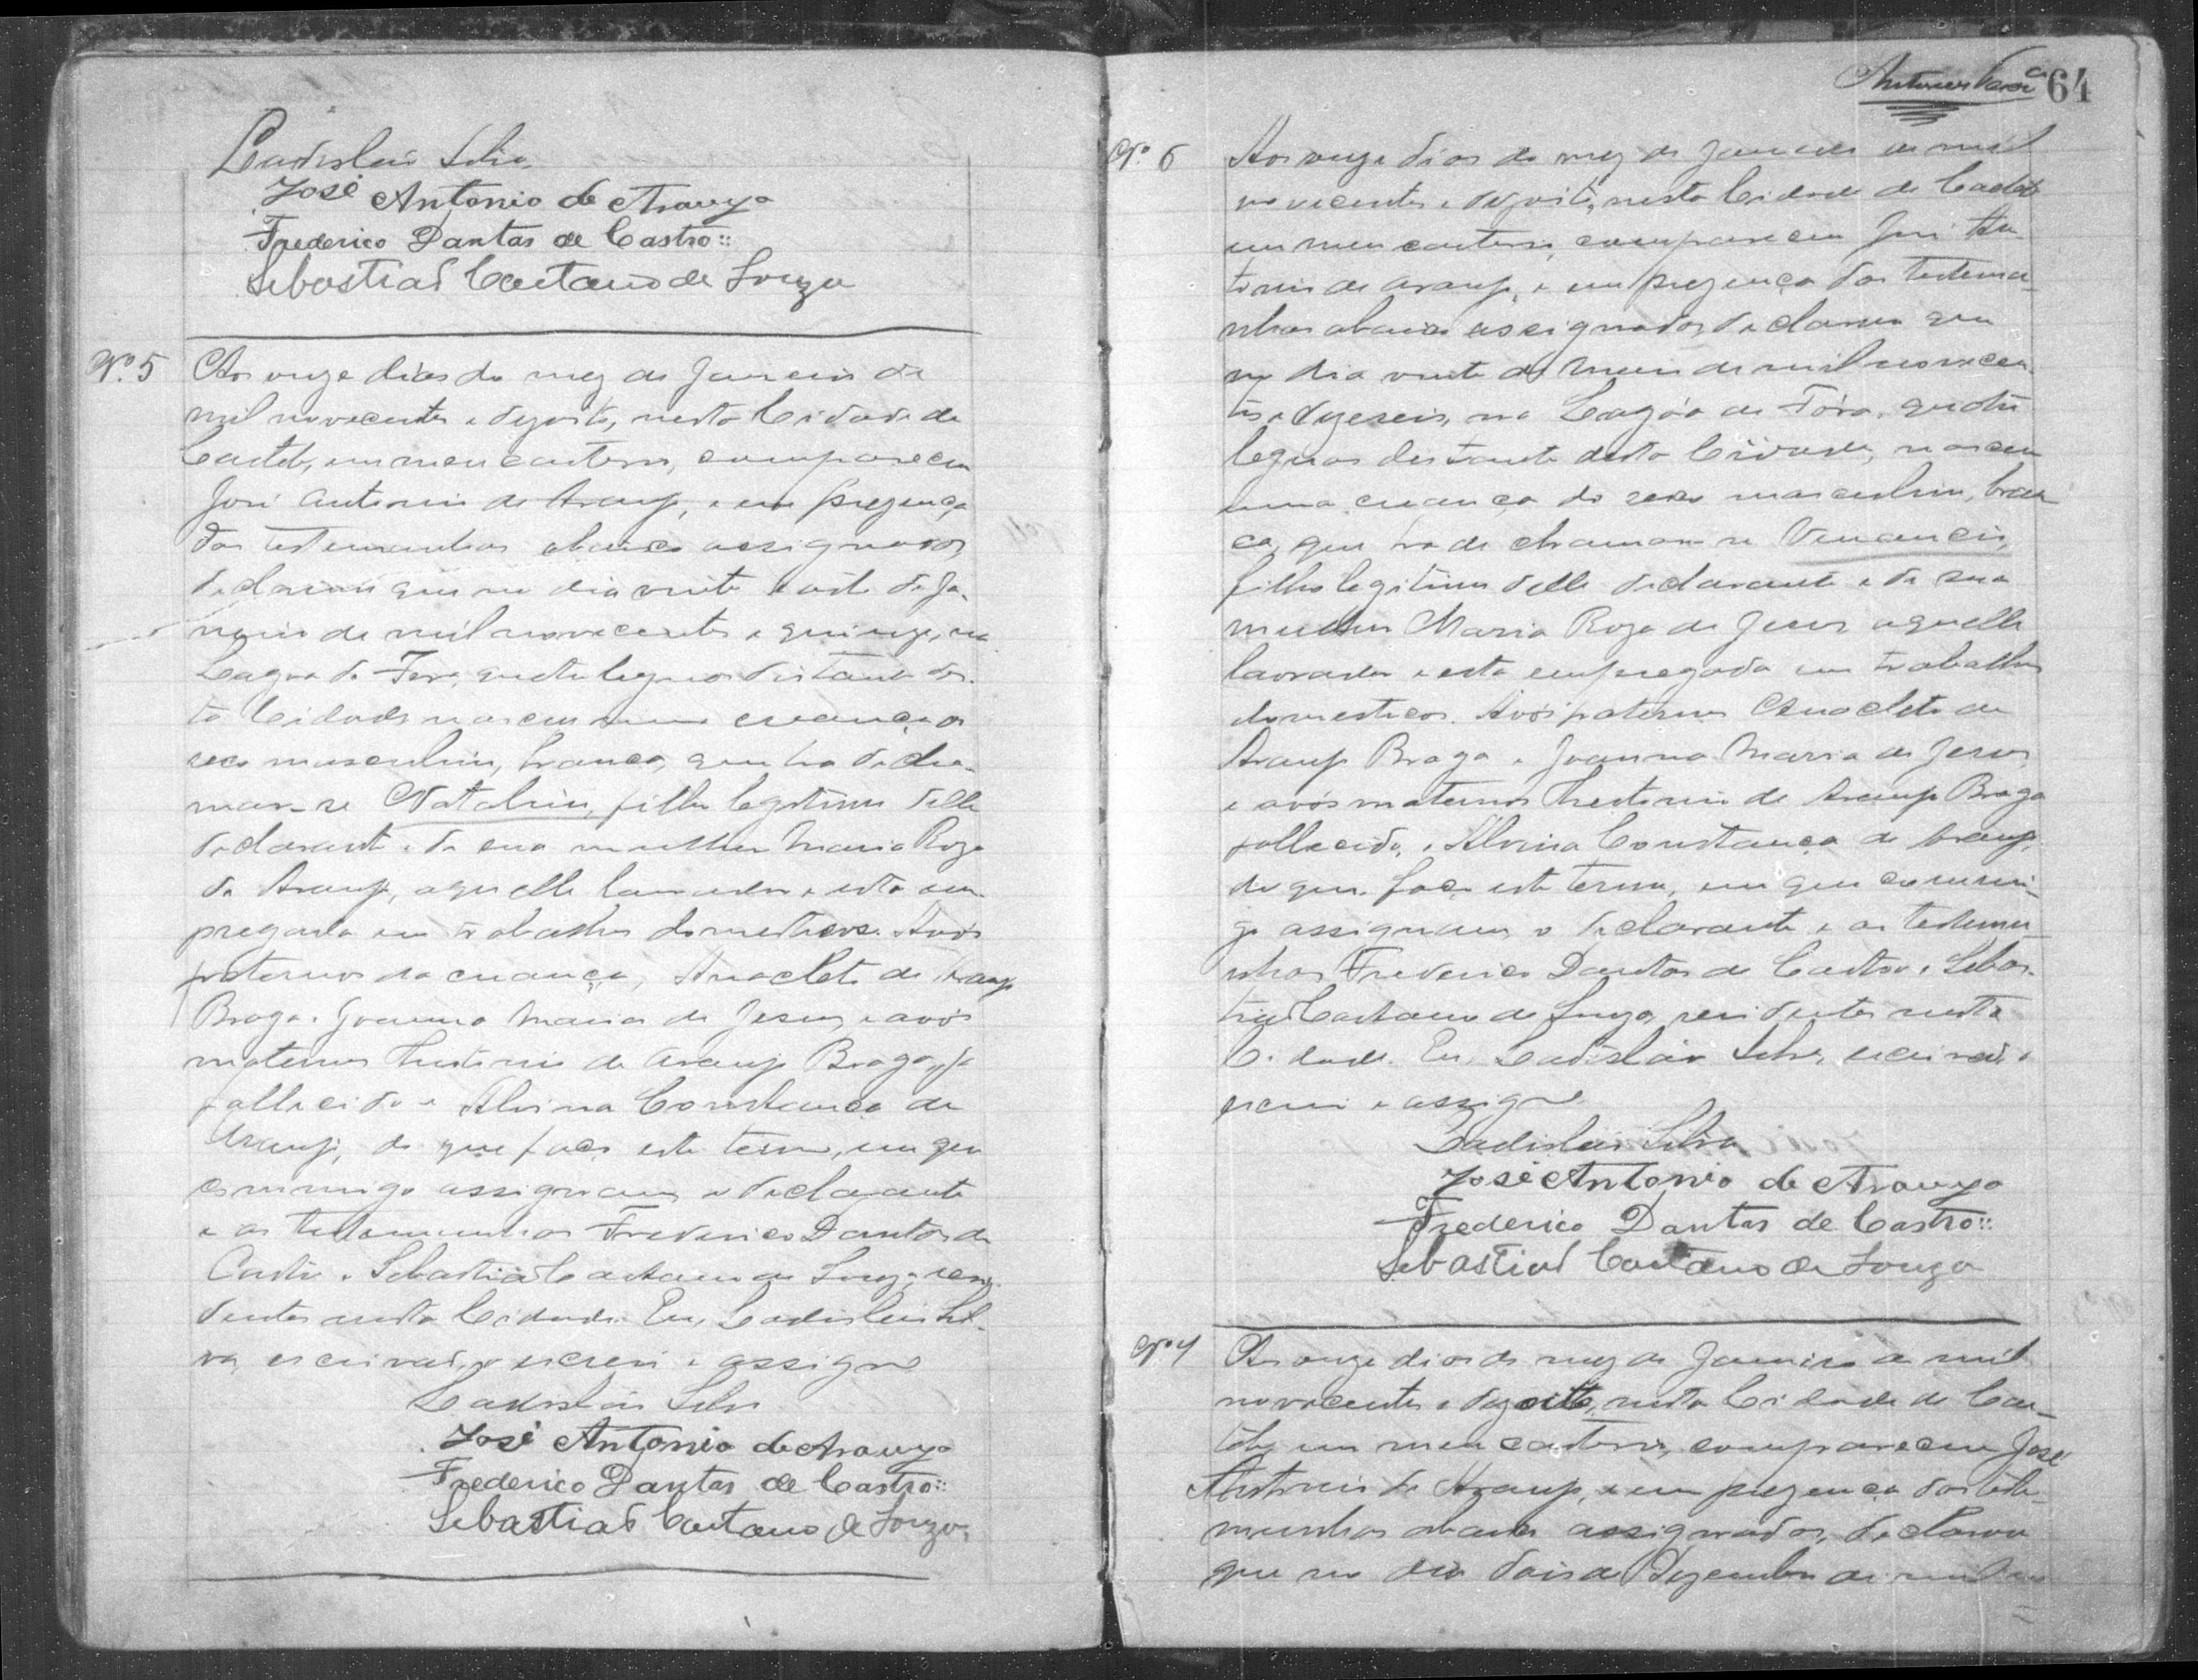 Ladislau Silva
José Antonio de Araujo
Frederico Dantas de Castro
Sebastião Caetano de Souza
Nº 5 Aos onze dias do mez de Janeiro de
mil novecentos e dezoito, nesta Cidade de
Caeteté, em meu cartorio, compareceu
José Antonio de Araujo, e em prezença
das testemunhas abaixo assignados
declarou que no dia vinte e oito de Ja-
neiro de mil novecentos e quinze, na
Lagoa de Fora, quatro legoas distante des-
ta Cidade nasceu uma creança do
sexo masculino, branca, que ha de cha-
mar-se Natalino, filho legitimo delle
declarante e de sua mulher Maria Roza
de Araujo, aquelle lavrador e esta em-
pregada em trabalhos domesticos. Avós
paternos da creança, Anacleto de Araujo
Braga e Joanna Maria de Jesus, e avós
maternos Theotonio de Araujo Braga, já
fallecido e Alvina Constança de
Araujo, do que faço este termo, em que
commigo assignam o declarante
e as testemunhas Frederico Dantas de
Castro e Sebastião Caetano de Souza, resi-
dentes nesta Cidade. Eu, Ladislau Sil-
va, escrivão, o escrevi e assigno
Ladislau Silva
José Antonio de Araujo
Frederico Dantas de Castro
Sebastião Caetano de Souza
64
Nº 6 Aos onze dias do mez de Janeiro de mil
novecentos e dezoito, nesta Cidade de Caeteté
em meu cartorio, compareceu José An-
tonio de Araujo, e em prezença das testemu-
nhas abaixo assignados, declarou que
no dia vinte de Maio de mil novecen-
tos e dezeseis, na Lagôa de Fóra, quatro
legoas distante desta Cidade, nasceu
uma creança do sexo masculino, bran-
ca, que ha de chamar-se Venancio,
filho legitimo delle declarante e de sua
mulher Maria Roza de Jesus aquelle
lavrador e esta empregada em trabalhos
domesticos. Avós paternos Anacleto de
Araujo Braga e Joanna Maria de Jesus
e avós maternos Theotonio de Araujo Braga
fallecido, e Alvina Constança de Araujo,
do que faço este termo, em que commi-
go assignam o declarante e as testemu-
nhas Frederico Dantas de Castro e Sebas-
tião Caetano de Souza, residentes nesta
Cidade. Eu, Ladislau Silva, escrivão o
escrevi e assigno
Ladislau Silva
José Antonio de Araujo
Frederico Dantas de Castro
Sebastião Caetano de Souza
Nº 7 Aos onze dias do mez de Janeiro de mil
novecentos e dezoito, nesta Cidade de Cae-
teté, em meu cartorio, compareceu José
Antonio de Araujo, e em prezença das teste-
munhas abaixo assignados, declarou
que no dia dois de Dezembro de mil